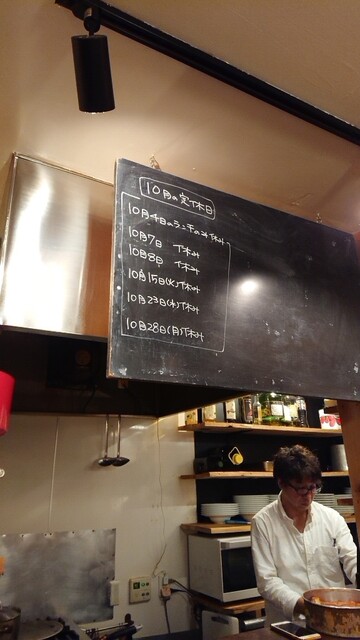 10月の定休日
10月4日のランチのみ休み
10月7日 休み
10月8日 休み
10月15日(火)休み
10月23日(水)休み
10月28日(月)休み